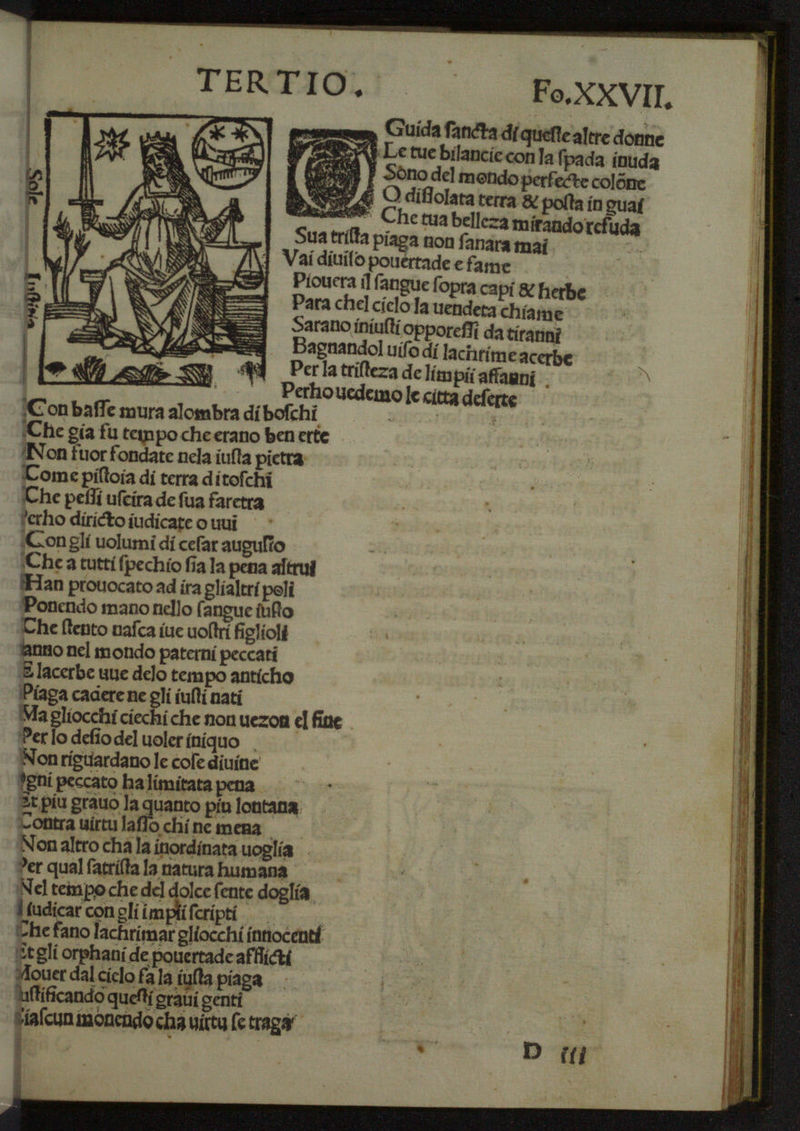 TERTIO.
Fo.XXVII.
Sole
Iustitia
O Guida sancta di queste altre donne
Le tue bilancie con la spada inuda
Sono del mondo perfecte colōne
O dissolata terra & posta in guai
Che tua belleza mirando refuda
Sua trista piaga non sanara mai
Vai diuiso pouertade e fame
Piouera il sangue sopra capi & herbe
Para chel cielo la uendeta chiame
Sarano iniusti oppressi da tiranni
Bagnandol uiso di lachrime acerbe
Per la tristeza de limpii affanni .
Perho uedemo le citta deserte
Con basse mura alombra di boschi
Che gia fu tempo che erano ben erte
Non fuor fondate nela iusta pietra
Come pistoia di terra di toschi
Che pessi uscira de sua faretra
Perho diricto iudicate o uui
Con gli uolumi di cesar augusto
Che a tutti spechio sia la pena altrui
Han prouocato ad ira glialtri poli
Ponendo mano nello sangue iusto
Che stento nasca iue uostri figlioli
nel mondo paterni peccati
E lacerbe uue delo tempo anticho
Piaga cadere ne gli iusti nati
Ma gliocchi ciechi che non uezon el fine
Per lo desio del uoler iniquo
Non riguardano le cose diuine
Ogni peccato ha limitata pena
Et piu grauo la quanto piu lontana
Contra uirtu lasso chi ne mena
Non altro cha la inordinata uoglia
Per qual satrista la natura humana
Nel tempo che del dolce sente doglia
iudicar con gli impii scripti
Che fano lachrimar gliocchi innocenti
Et gli orphani de pouertade afflicti
Mouer dal cielo fa la iusta piaga
Iustificando questi graui genti
Ciascun monendo cha uirtu se traga
D iii